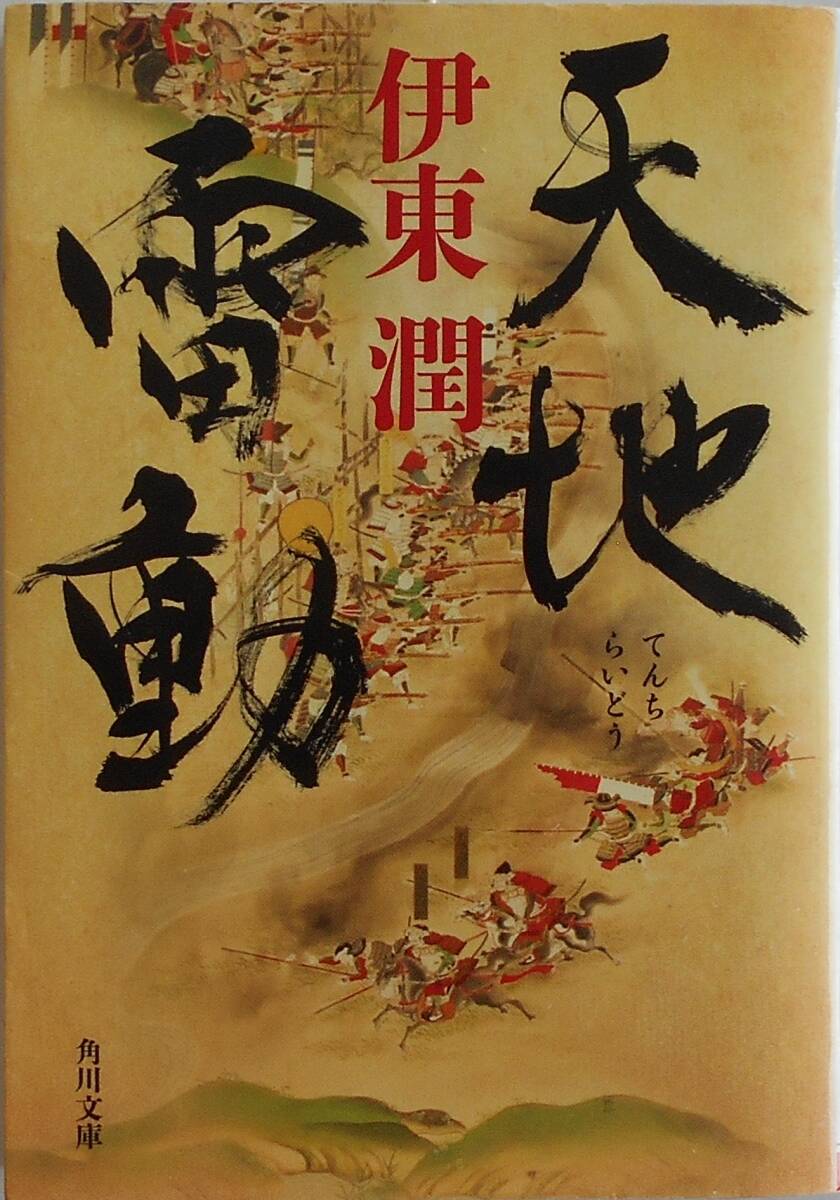 天地
雷動
てんち
らいどう
伊東 潤
角川文庫